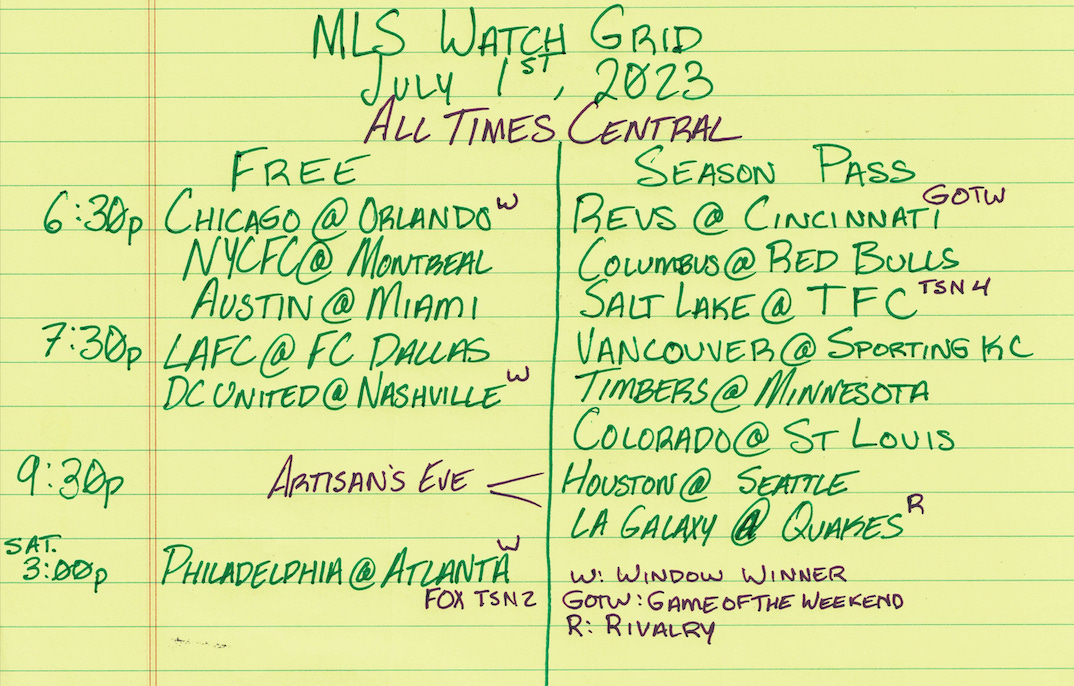 MLS WATCH GRID
JULY 1ST, 2023
ALL TIMES CENTRAL
FREE
6:30p CHICAGO @ ORLANDO W
NYCFC @ MONTREAL
AUSTIN @ MIAMI
7:30p LAFC @ FC DALLAS
DC UNITED @ NASHVILLE W
9:30p ARTISAN'S EVE
SAT.
3:00p PHILADELPHIA @ ATLANTA W
FOX TSN2
SEASON PASS
REVS @ CINCINNATI GOTW
COLUMBUS @ RED BULLS
SALT LAKE @ TFC TSN4
VANCOUVER @ SPORTING KC
TIMBERS @ MINNESOTA
COLORADO @ ST LOUIS
HOUSTON @ SEATTLE
LA GALAXY @ QUAKES R
W: WINDOW WINNER
GOTW: GAME OF THE WEEKEND
R: RIVALRY